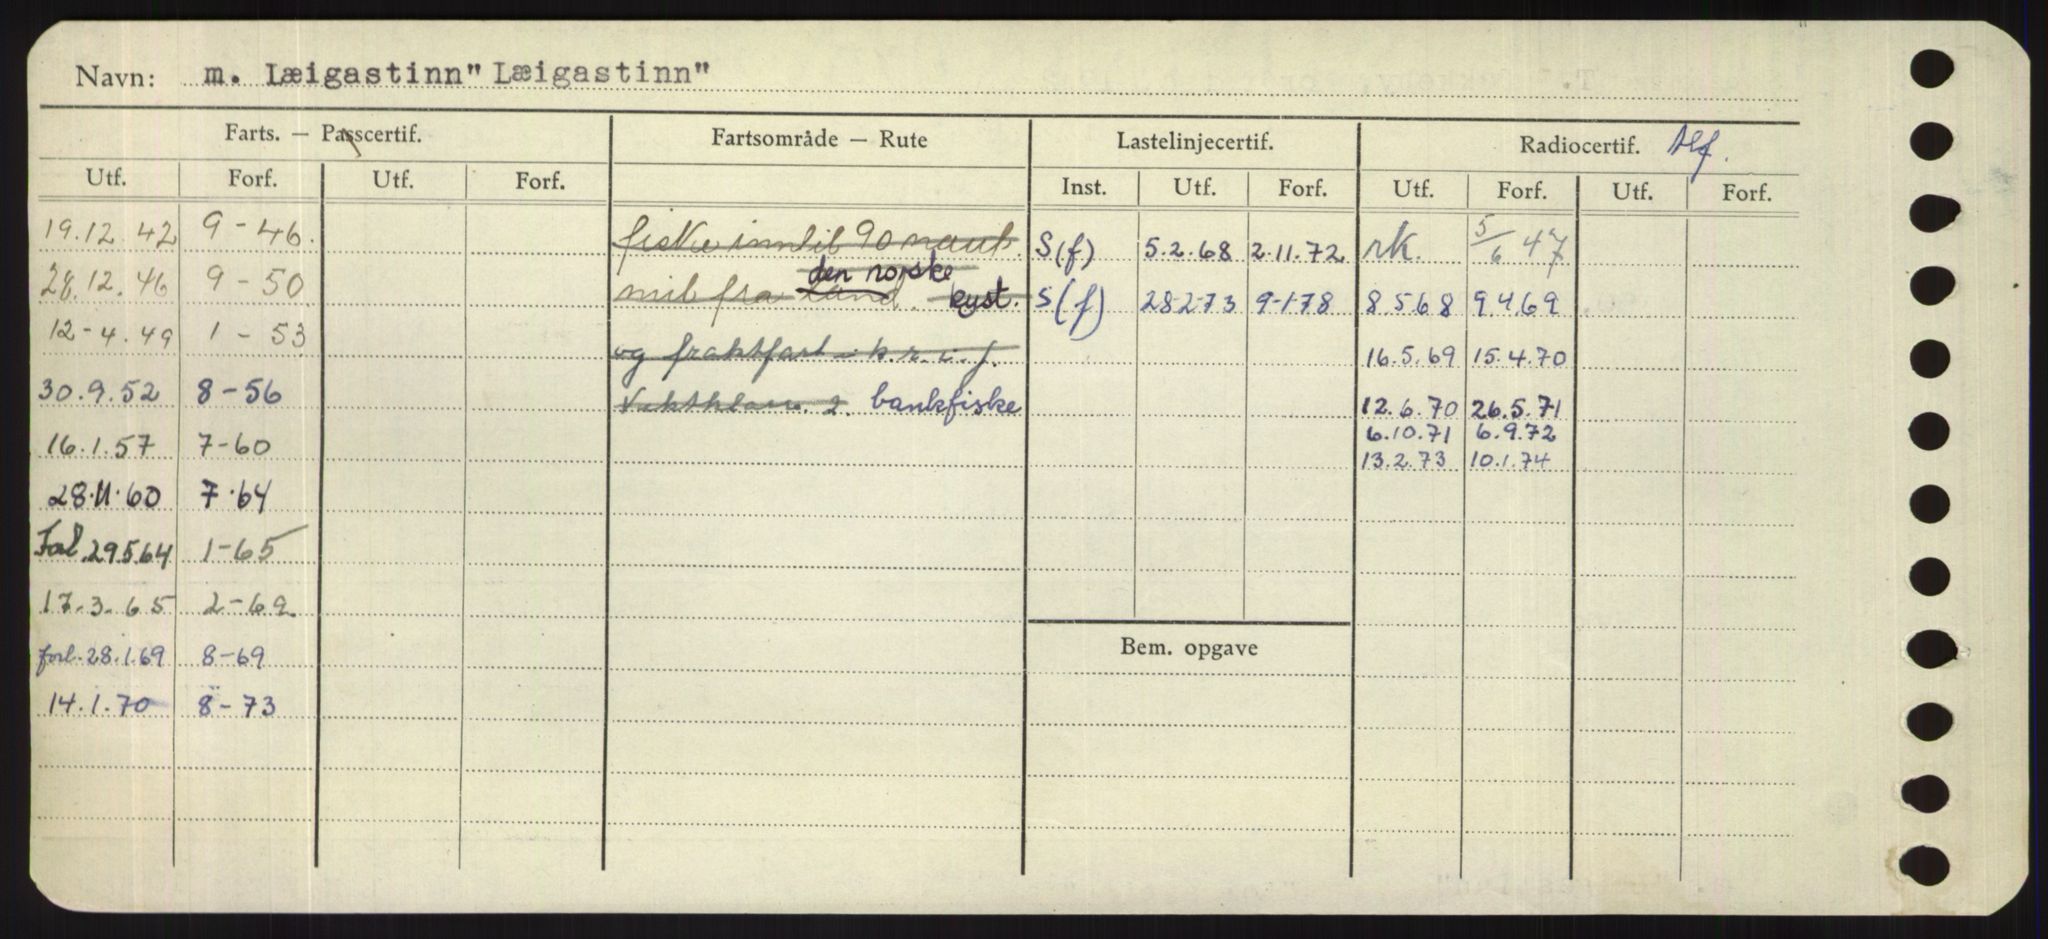 Navn: m. Læigastinn" Læigastinn"
Farts. — Passcertif. Fartsområde — Rute Lastelinjecertif. Radiocertif. tlf.
Utf. Forf. Utf. Forf. Inst. Utf. Forf. Utf. Forf. Utf. Forf.
19.12.42 9-46. fiske inntil 90 naut. S(f) 5.2.68 2.11.72 rk. 5/6 47
den norske
28.12.46 9-50 mil fra land. kyst. S(f) 28-2-73 9-1-78 8.5.68 9.4.69
12-4.49 1-53 og fraktfart i k.r.i.f. 16.5.69 15.4.70
30.9.52 8-56 2. bankfiske 12.6.70 26.5.71
6.10.71 6.9.72
16.1.57 7-60 13.2.73 10.1.74
28.11.60 7.64
Forl. 29.5.64 1-65
17.3.65 2-69
Bem. opgave
forl. 28.1.69 8-69
14.1.70 8-73